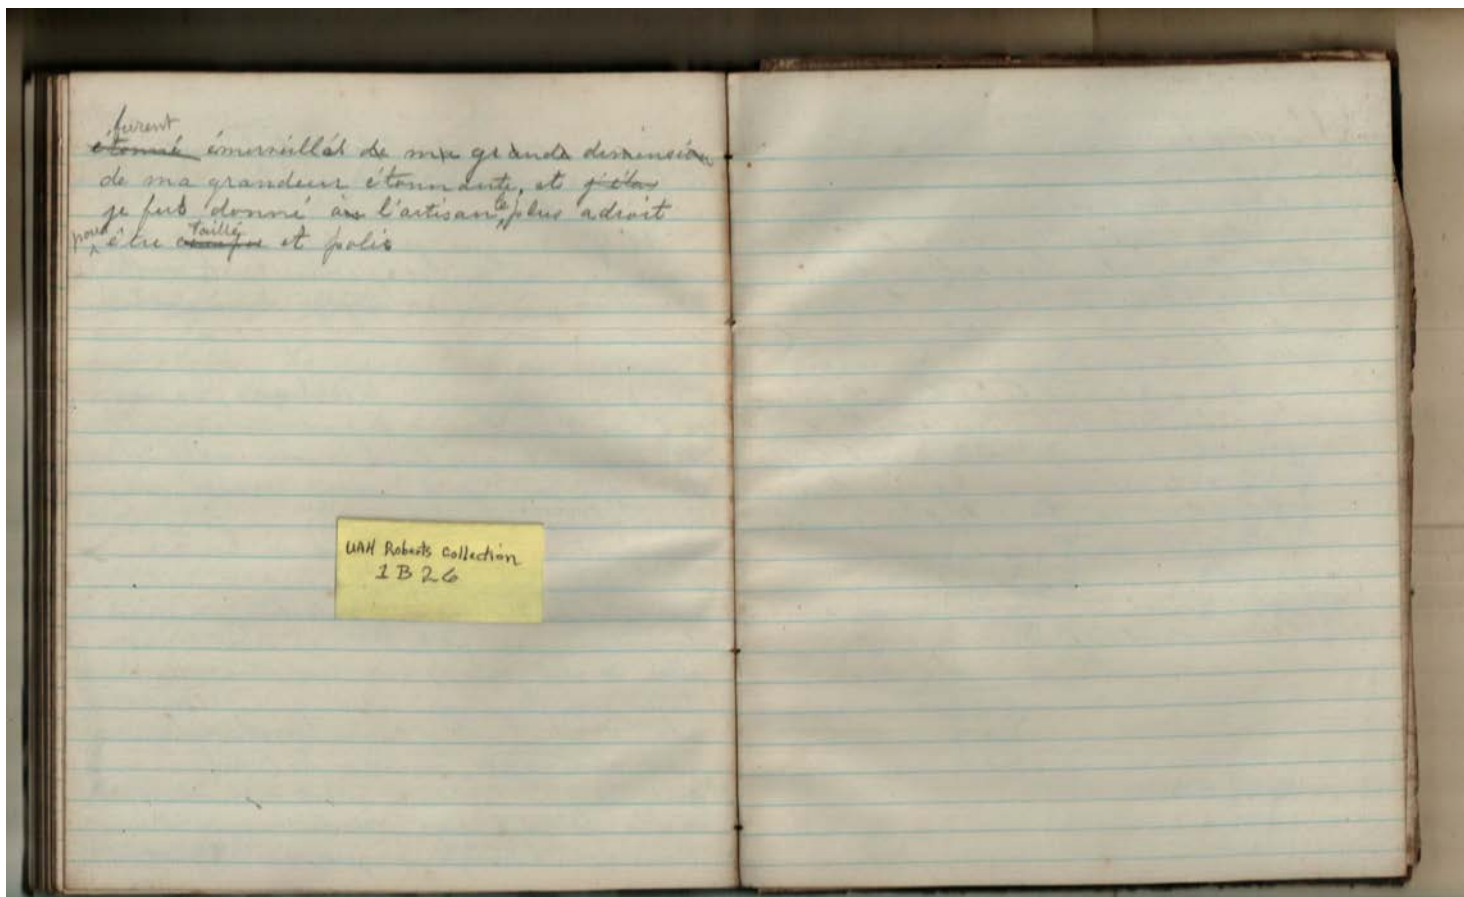 furent
étonné émerveillés de ma grande dimension
de ma grandeur étonnante, et j'étais
je fus donné à l'artisan le plus adroit
pour être taillé et polis
UAH Roberts Collection
1B26